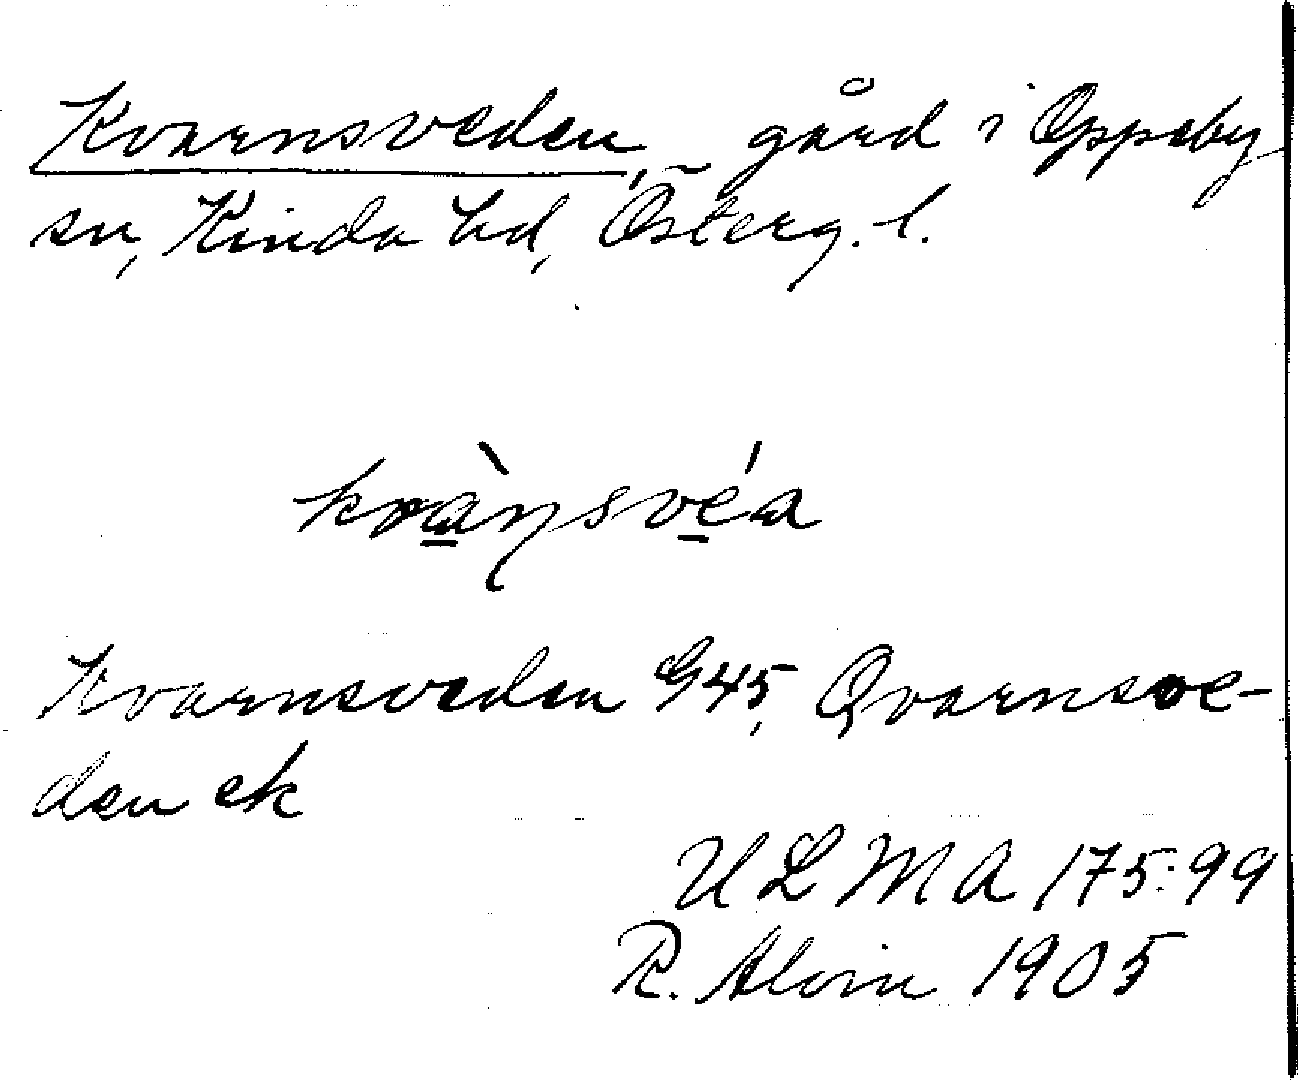 Kvarnsveden, gård i Oppeby
sn, Kinda hd, Österg. l.
kvàṇsvéa
Kvarnsveden G45, Qvarnsve-
den ek
ULMA 175:99
R. Alvin 1905